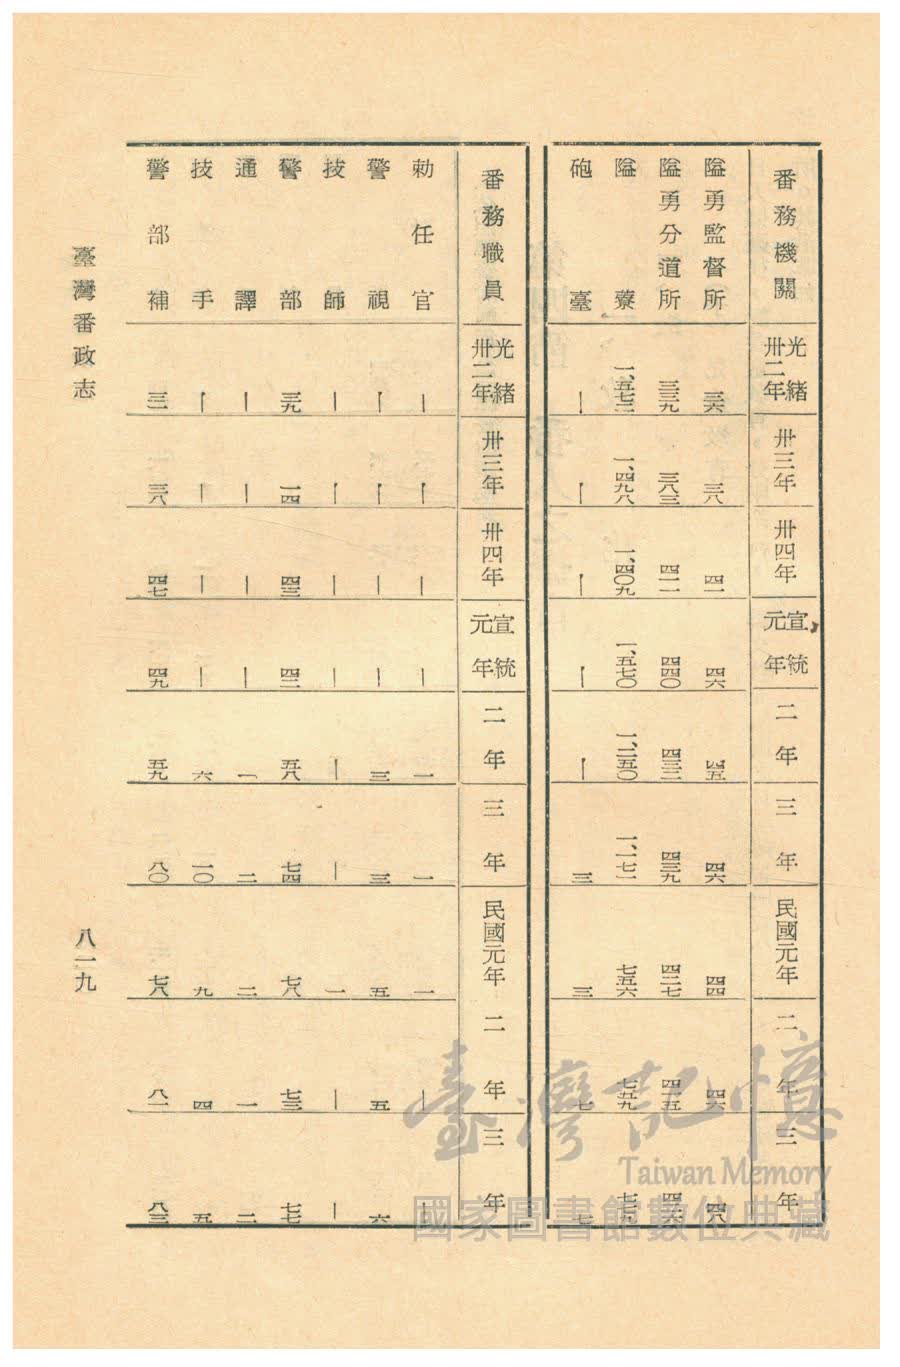 番務機關 光緒卅二年 卅三年 卅四年 宣統元年 二年 三年 民國元年 二年 三年
隘勇監督所 三六 三八 四一 四六 四五 四六 四四 四六 四八
隘勇分道所 三三九 三八三 四一一 四四〇 四三三 四三九 四二七
隘寮 一、五七二 一、四九八 一、四〇九 一、五七〇 一、二五〇 一、一七一 七五六 七五九 七七九
砲臺 ｜ ｜ ｜ ｜ ｜ 三 三 七 七
番務職員 光緒卅二年 卅三年 卅四年 宣統元年 二年 三年 民國元年 二年 三年
勅任官 ｜ ｜ ｜ ｜ 一 一 一 ｜ ｜
警視 ｜ ｜ ｜ ｜ 三 三 五 五 六
技師 ｜ ｜ ｜ ｜ ｜ ｜ 一 ｜ ｜
警部 三九 一四 四三 四二 五八 七四 七八 七三 七七
通譯 ｜ ｜ ｜ ｜ 一 二 二 一 二
技手 ｜ ｜ ｜ ｜ 六 一〇 九 四 五
警部補 三二 三八 四七 四九 五九 八〇 七八 八一 八三
臺灣番政志 八一九
臺灣記憶
Taiwan Memory
國家圖書館數位典藏